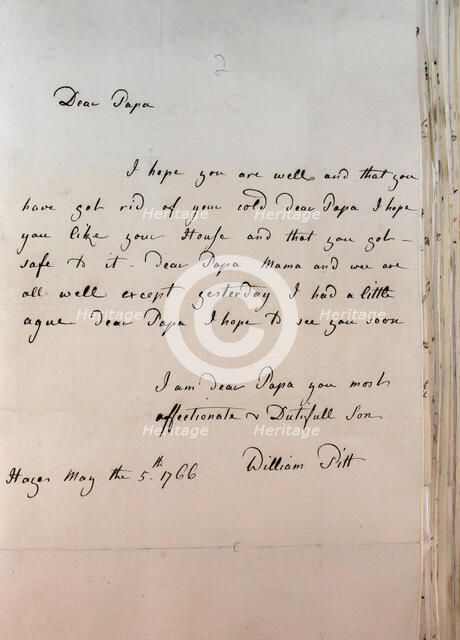 2
Dear Papa
I hope you are well and that you
have got rid of your cold dear Papa I hope
you like your House and that you got
safe to it - dear Papa Mama and we are
all well except yesterday I had a little
ague dear Papa I hope to see you soon
I am dear Papa you most
affectionate & Dutifull Son
William Pitt
Hayes May the 5.th 1766
Heritage Heritage
Heritage Heritage
Heritage Heritage
Heritage Heritage
©